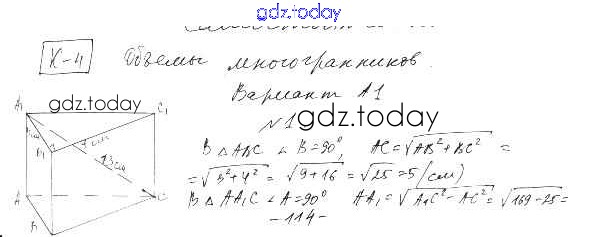 gdz.today
К-4 Объемы многогранников.
Вариант А1
gdz.today
gdz.today
№1
A₁ C₁
B₁
4 см
13 см
A C
B
В △ABC ∠B=90°, AC=√AB²+BC² =
=√3²+4² = √9+16 = √25=5 (см)
В △AA₁C ∠A=90° AA₁=√A₁C²-AC²=√169-25=
-114-